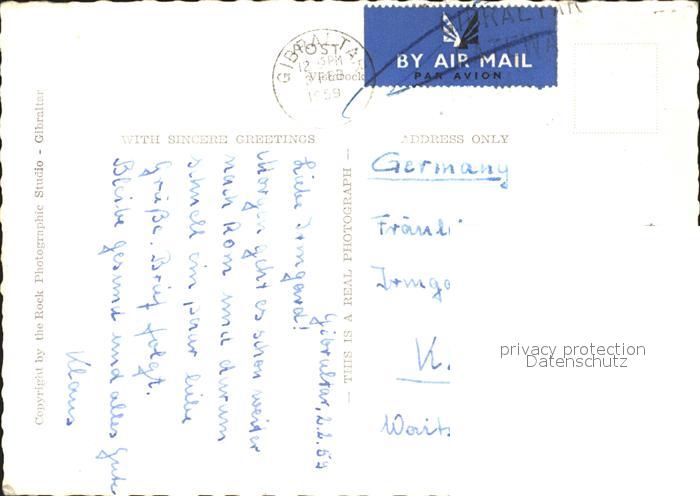 GIBRALTAR
POST
12 15PM
2 FEB
1959
BY AIR MAIL
PAR AVION
WITH SINCERE GREETINGS
ADDRESS ONLY
Copyright by the Rock Photographic Studio - Gibraltar
— THIS IS A REAL PHOTOGRAPH —
Gibraltar, 2.2.59
Liebe Irmgard!
Morgen geht es schon weiter
nach Rom und darum
schnell ein paar liebe
Grüße. Brief folgt.
Bleibe gesund und alles Gute
Klaus
Germany
Fräuli
Irmga
K.
privacy protection
Datenschutz